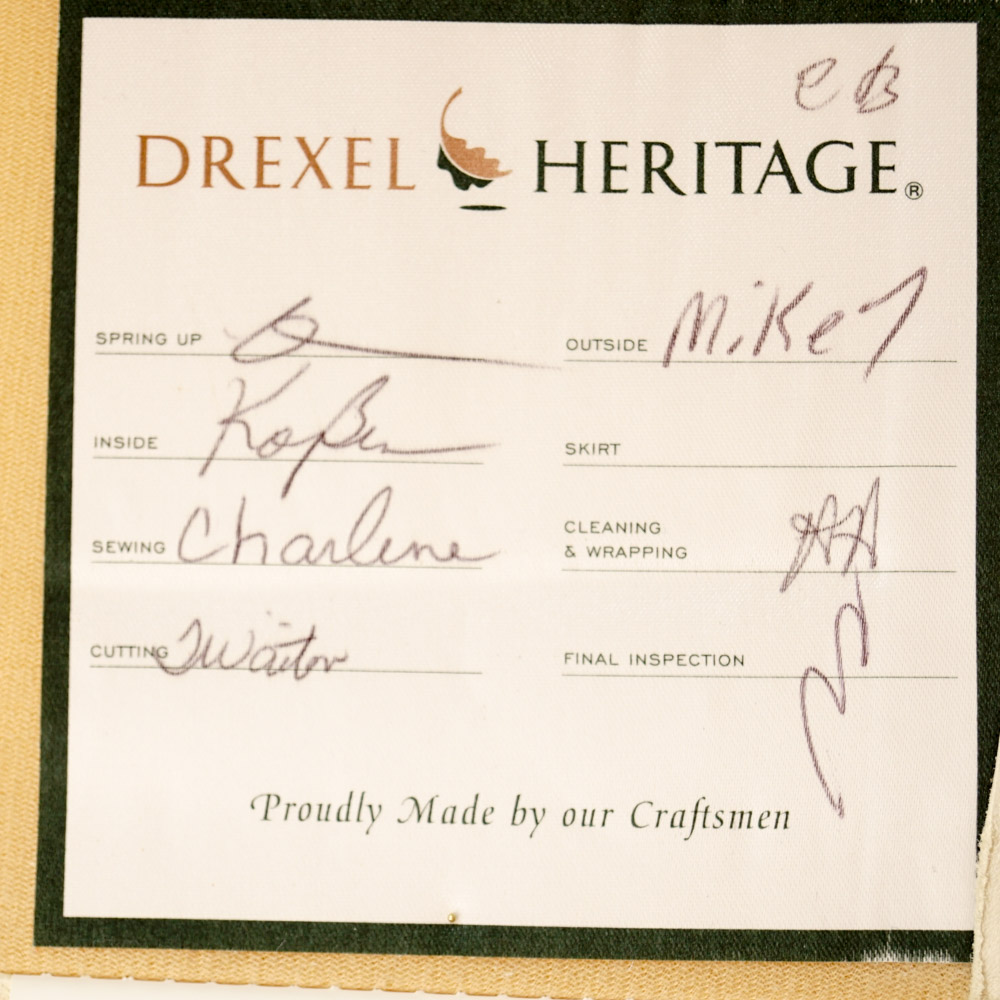 CB
DREXEL HERITAGE®
SPRING UP
OUTSIDE Mike
INSIDE
SKIRT
SEWING Charlene
CLEANING
& WRAPPING
CUTTING
FINAL INSPECTION
Proudly Made by our Craftsmen